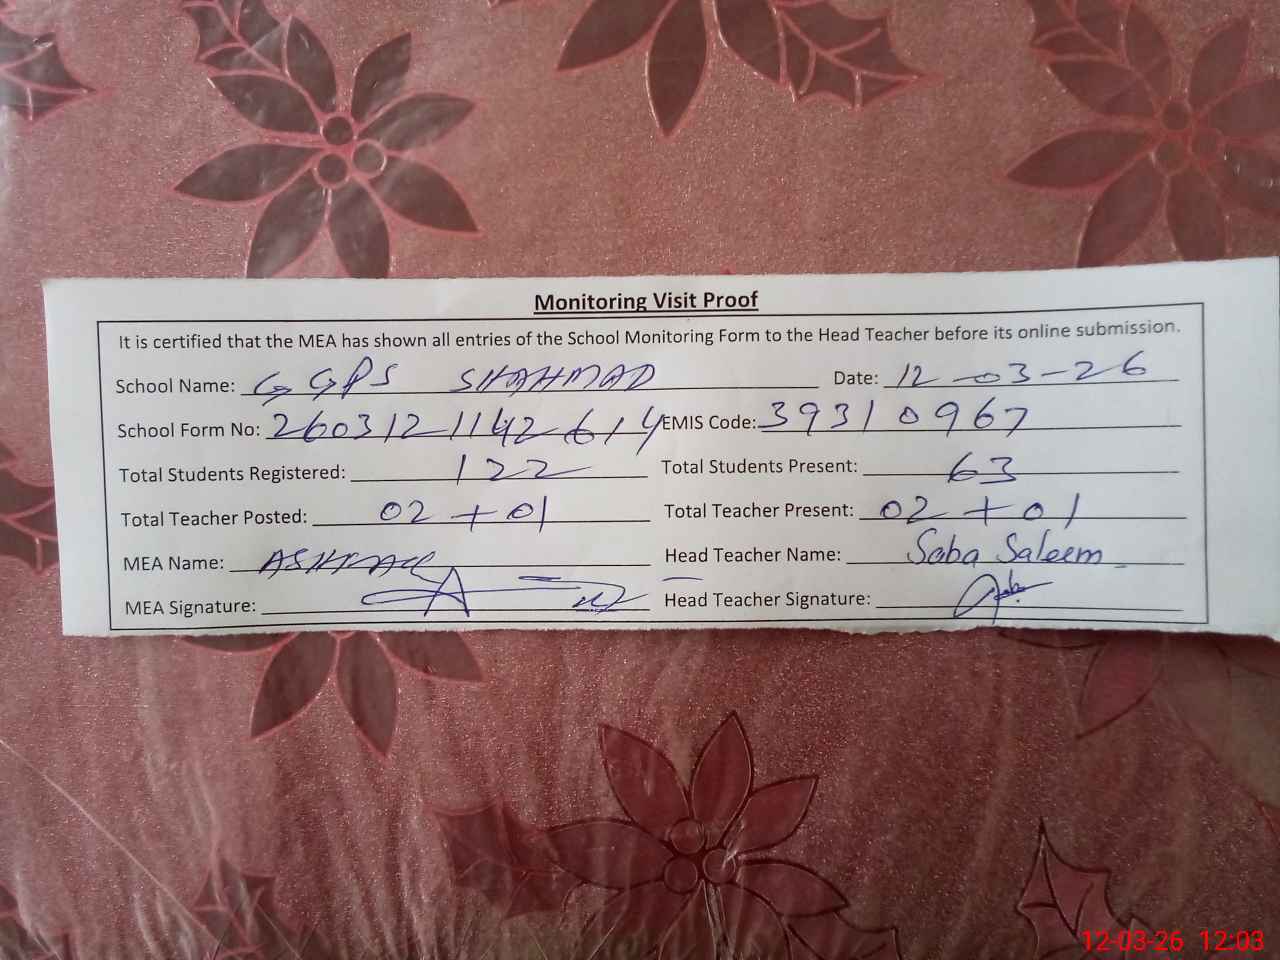 Monitoring Visit Proof
It is certified that the MEA has shown all entries of the School Monitoring Form to the Head Teacher before its online submission.
School Name: GGPS SHAHMAD Date: 12-03-26
School Form No: 2603121142614 EMIS Code: 39310967
Total Students Registered: 122 Total Students Present: 63
Total Teacher Posted: 02 + 01 Total Teacher Present: 02 + 01
MEA Name: Head Teacher Name: Saba Saleem
MEA Signature: Head Teacher Signature:
12-03-26 12:03